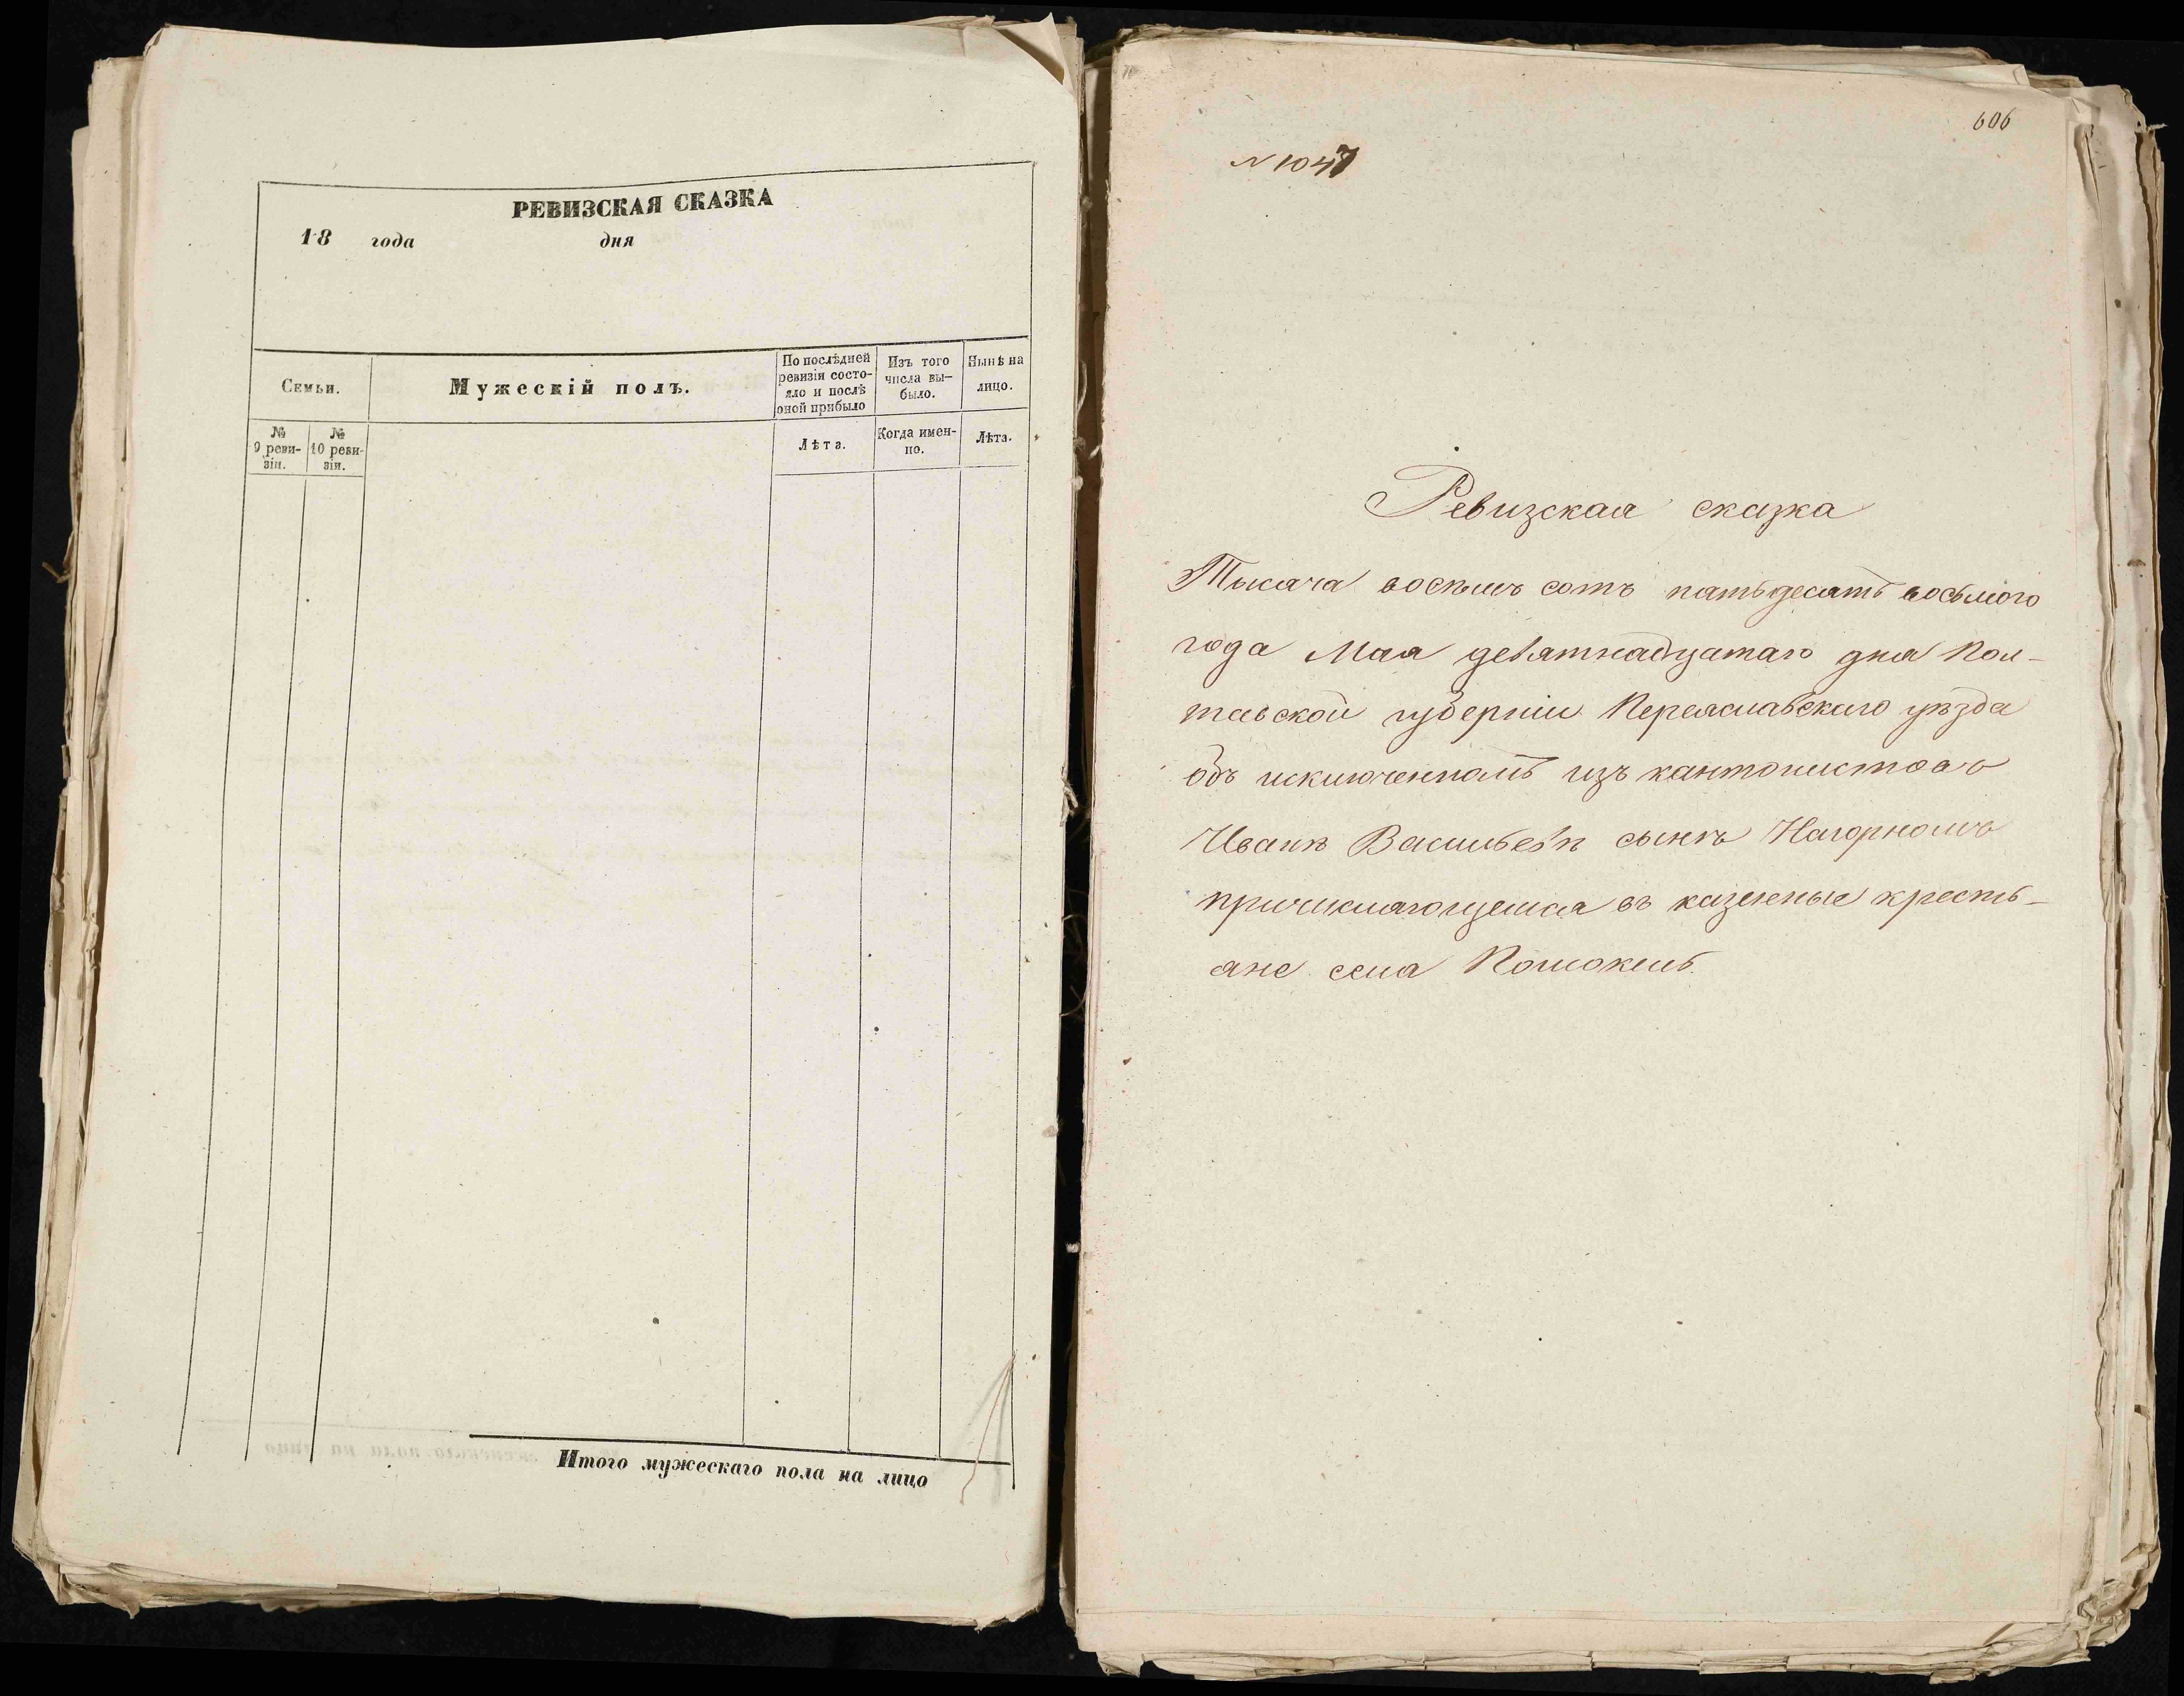 РЕВИЗСКАЯ СКАЗКА
18 года дня
Семьи.
Мужескій полъ.
По послѣдней ревизіи состо-
яло и послѣ
оной прибыло
Изъ того
числа вы-
было.
Нынѣ на
лицо.
№
9 реви-
зіи.
№
10 реви-
зіи.
Лѣта.
Когда имен-
но.
Лѣта.
Итого мужескаго пола на лицо
606
N 1047
Ревизская сказка
Тысяча восемь сотъ пятьдесятъ восьмого
года Мая девятнадцатаго дня Пол-
тавской губерніи Переяславскаго уѣзда
объ исключенномъ изъ кантонистовъ
Иванѣ Васильевѣ сынѣ Нагорномъ
причисляющемся въ казенные кресть-
яне села